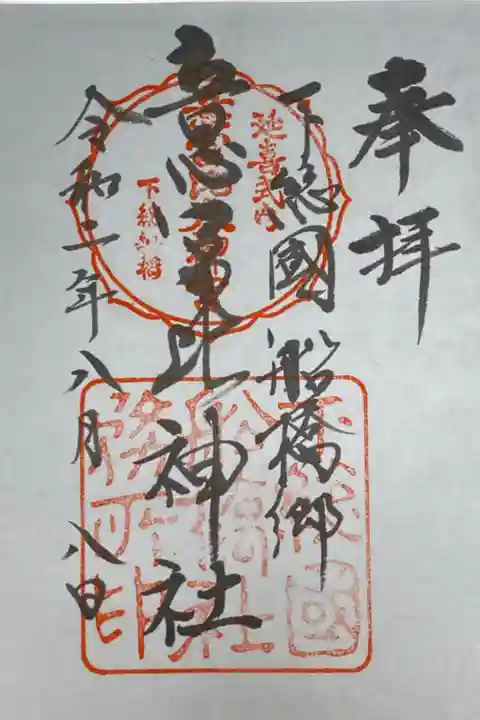 奉拝
下総國船橋郷
意富比神社
令和二年八月八日
延喜式内
下総船橋